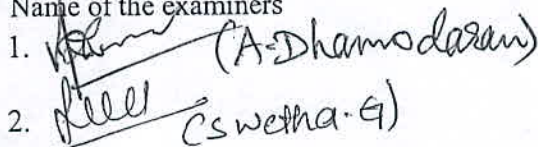 Name of the examiners
1. (A-Dhamodaran)
2. (Swetha.G)